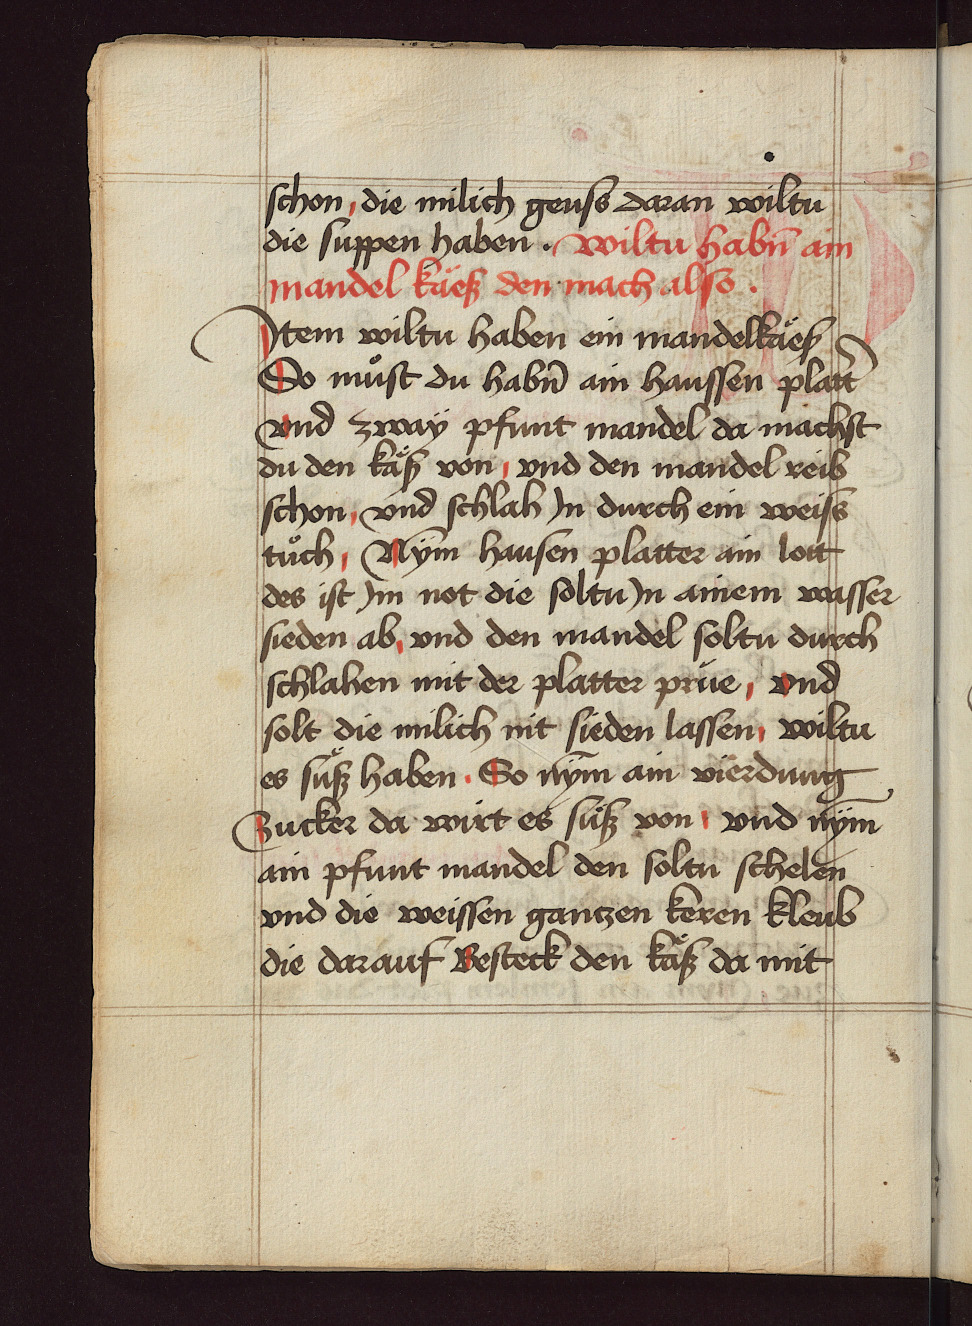 schon, die milich geuss daran wiltu
die suppen haben. wiltu habn̄ ain
mandel käeß den mach also.
Item wiltu haben ein mandelkäeß
So muͦst du habn̄ ain haussen platt̄
vnd zway pfunt mandel da machst
du den kaͤß von, vnd den mandel reib
schon, vnd schlah In durch ein weiss
tuͦch, Nym̄ hausen platter ain lott
des ist Im not die soltu In ainem wasser
sieden ab, vnd den mandel soltu durch
schlahen mit der platter prüe, vnd
solt die milich nit sieden lassen, wiltu
es suͤß haben. So nym̄ ain vierdung
zucker da wirt es süß von, vnd nym̄
ain pfunt mandel den soltu schelen
vnd die weissen gantzen keren kleub
die darauf Besteck den kaͤß da mit